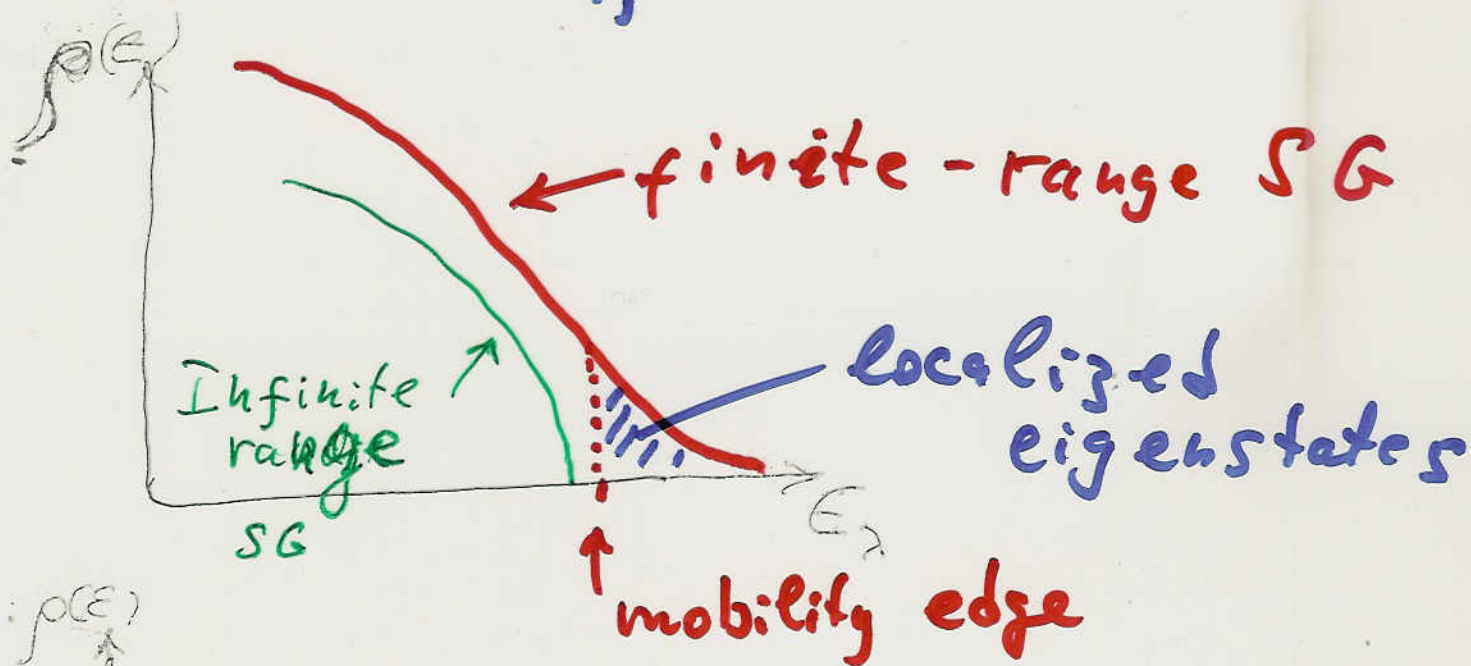 ρ(ϵ)
finite-range SG
Infinite
range
SG
localized
eigenstates
ϵ_λ
mobility edge
ρ(ε)